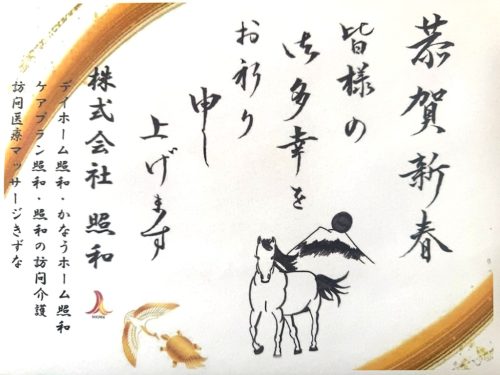 恭賀新春
皆様の
御多幸を
お祈り
申し
上げます
株式会社 照和
デイホーム照和・かなうホーム照和
ケアプラン照和・照和の訪問介護
訪問医療マッサージきずな